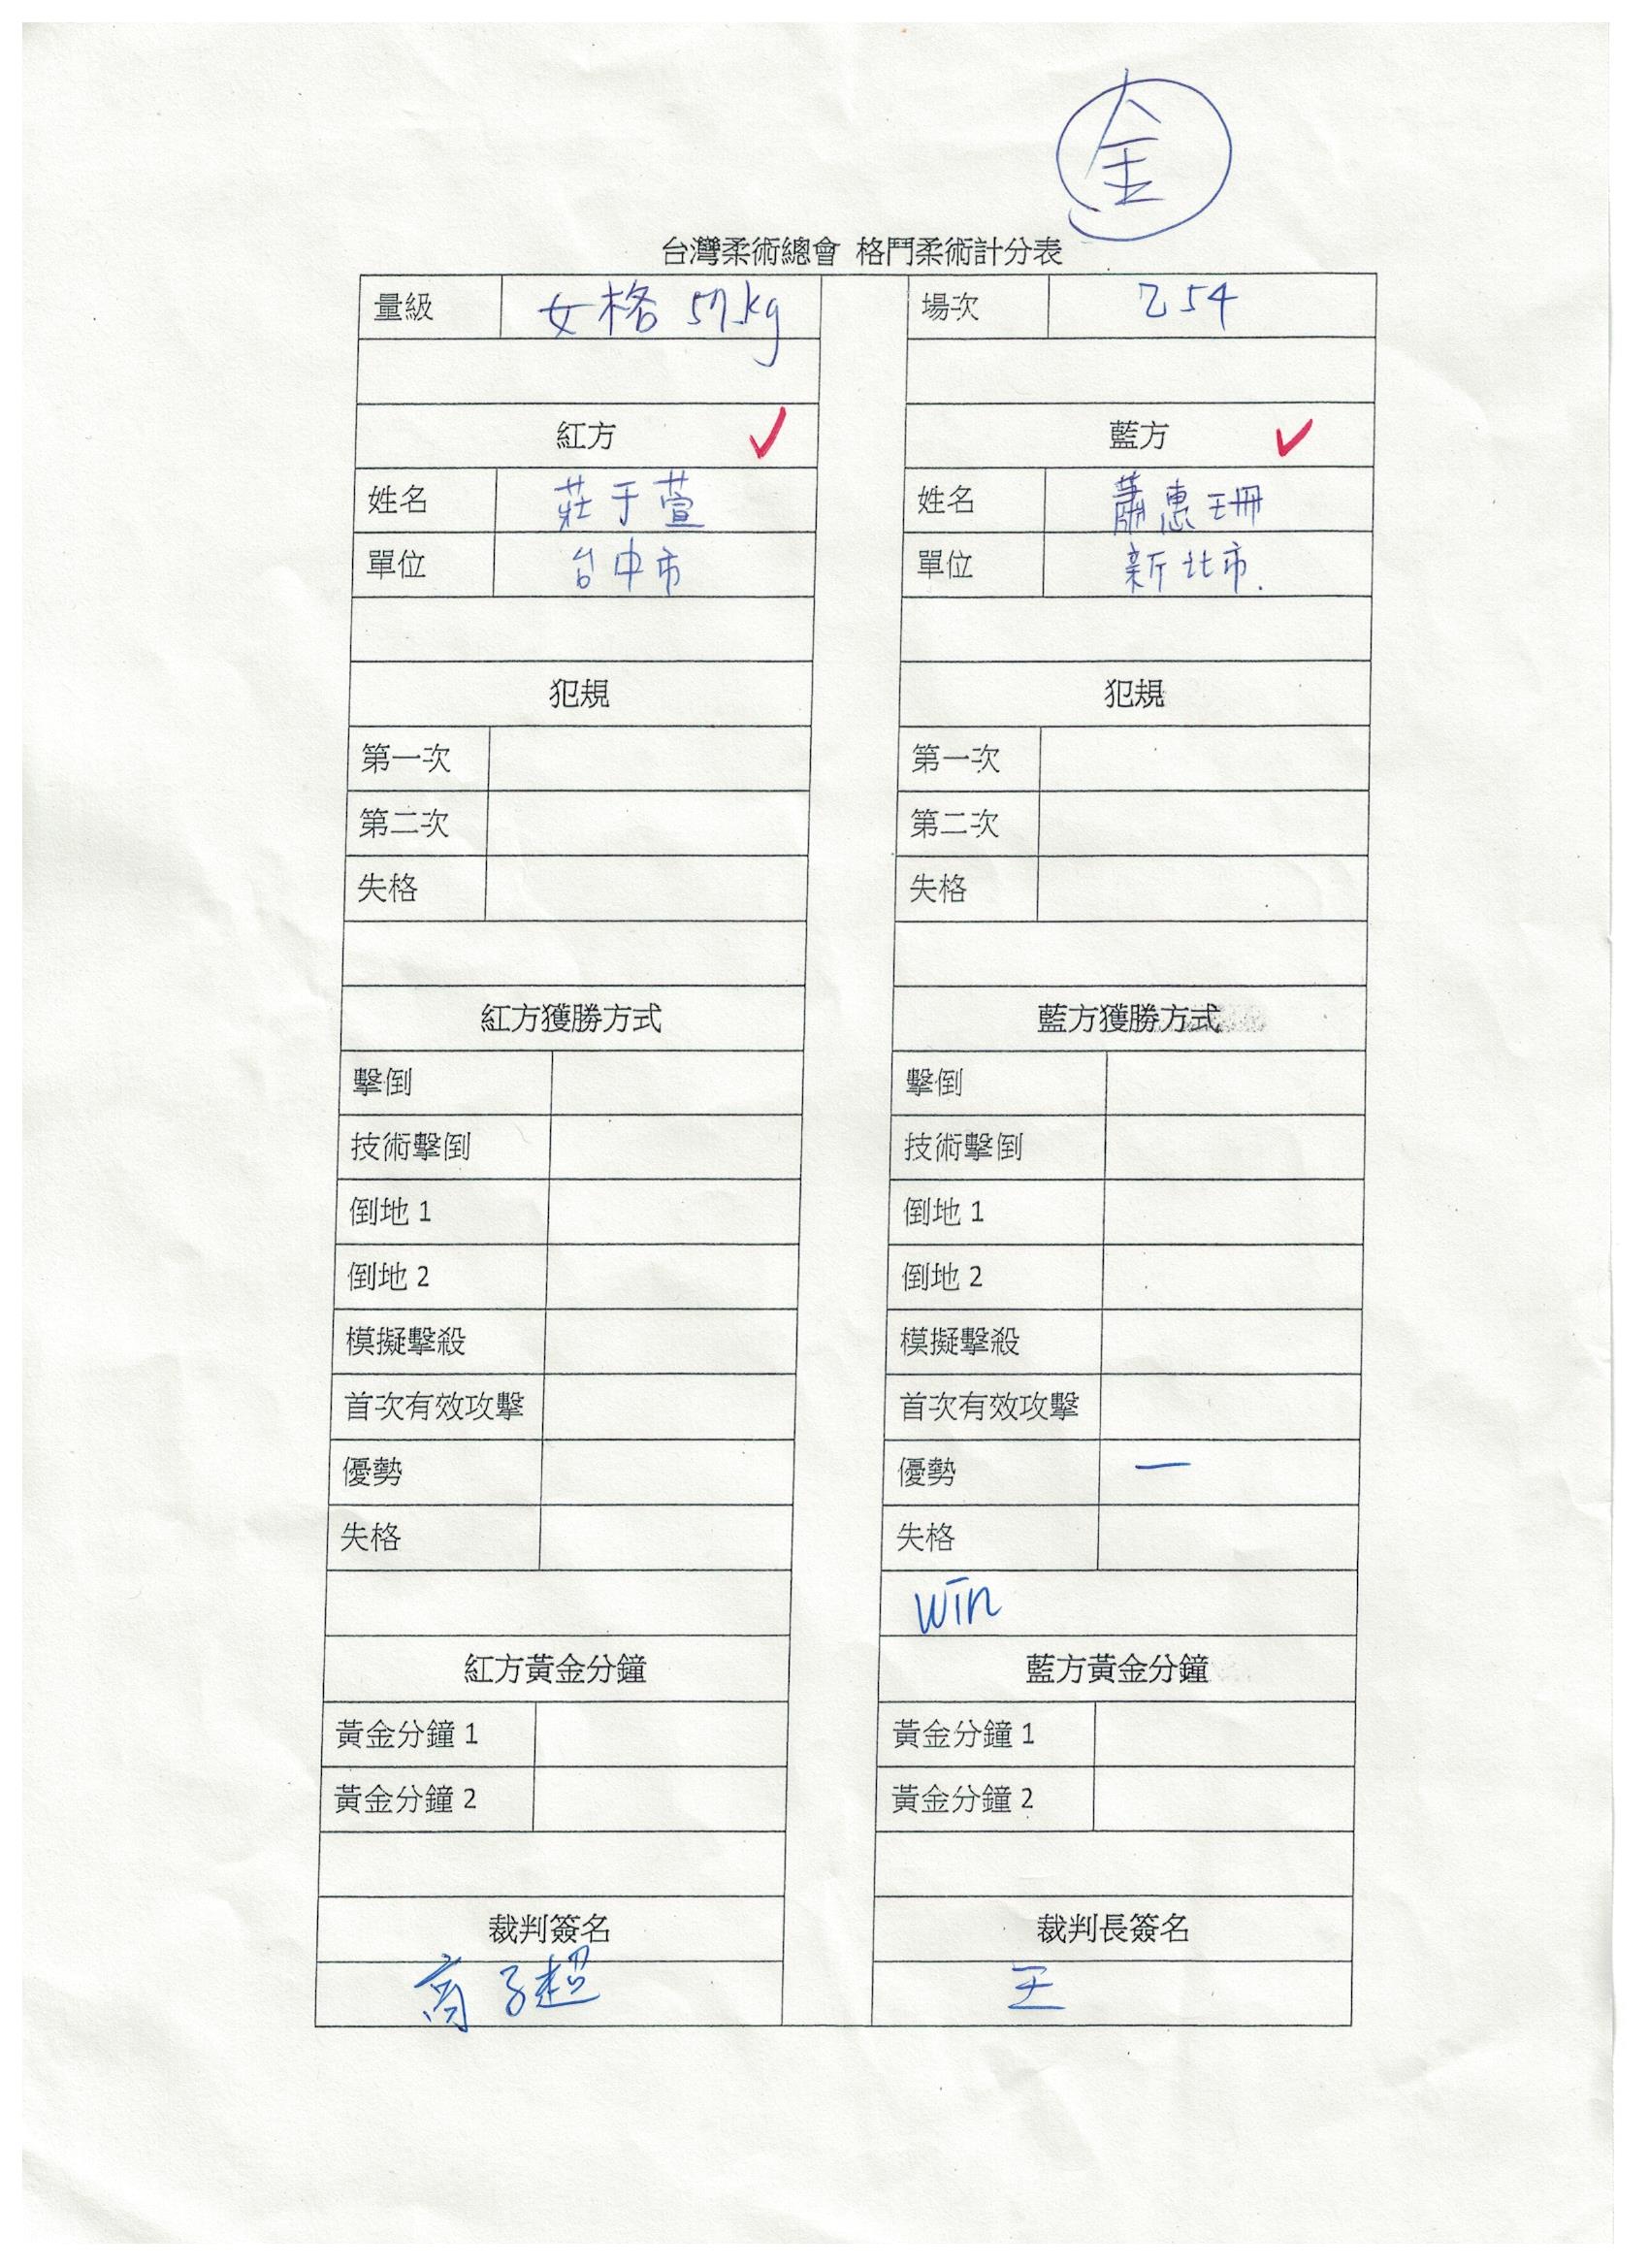 金
台灣柔術總會 格鬥柔術計分表
量級 女格 57kg 場次 乙54
紅方 ✓ 藍方 ✓
姓名 莊于萱 姓名 蕭惠珊
單位 台中市 單位 新北市.
犯規 犯規
第一次 第一次
第二次 第二次
失格 失格
紅方獲勝方式 藍方獲勝方式
擊倒 擊倒
技術擊倒 技術擊倒
倒地 1 倒地 1
倒地 2 倒地 2
模擬擊殺 模擬擊殺
首次有效攻擊 首次有效攻擊
優勢 優勢 一
失格 失格
win
紅方黃金分鐘 藍方黃金分鐘
黃金分鐘 1 黃金分鐘 1
黃金分鐘 2 黃金分鐘 2
裁判簽名 裁判長簽名
子超 王